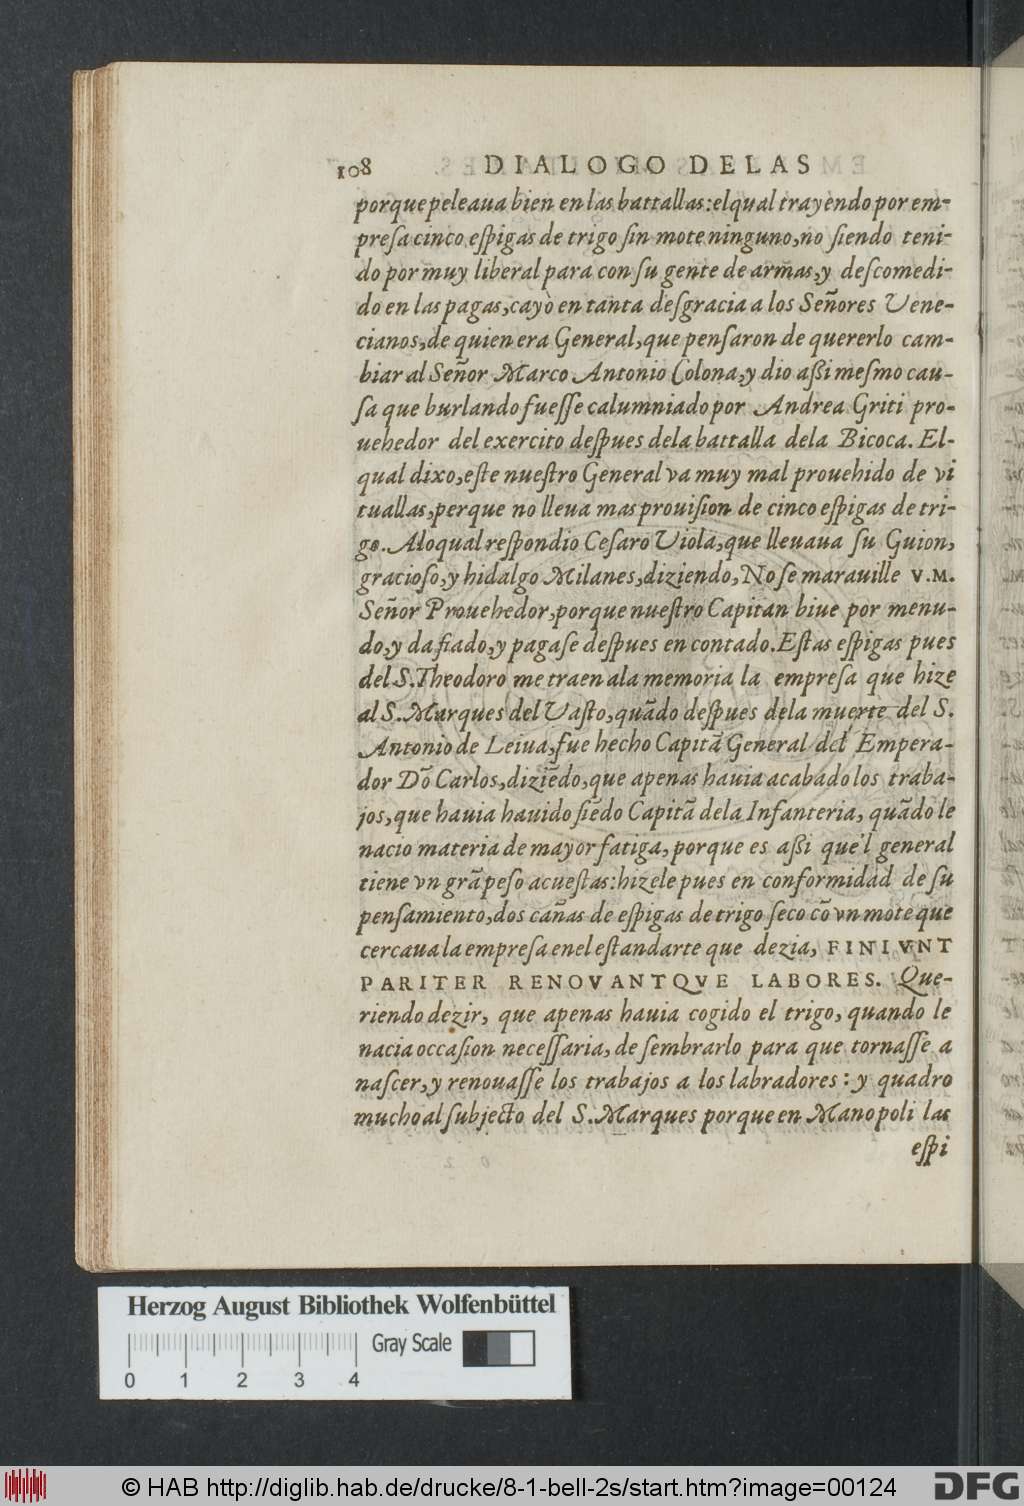 108 DIALOGO DELAS
porque peleaua bien en las battallas: elqual trayendo por em-
presa cinco espigas de trigo sin mote ninguno, no siendo teni-
do por muy liberal para con su gente de armas, y descomedi-
do en las pagas, cayò en tanta desgracia a los Señores Vene-
cianos, de quien era General, que pensaron de quererlo cam-
biar al Señor Marco Antonio Colona, y dio aßi mesmo cau-
sa que burlando fuesse calumniado por Andrea Griti pro-
uehedor del exercito despues dela battalla dela Bicoca. El-
qual dixo, este nuestro General va muy mal prouehido de vi
tuallas, perque no lleua mas prouision de cinco espigas de tri-
go. Aloqual respondio Cesaro Viola, que lleuaua su Guion,
gracioso, y hidalgo Milanes, diziendo, No se marauille V.M.
Señor Prouehedor, porque nuestro Capitan biue por menu-
do, y da fiado, y pagase despues en contado. Estas espigas pues
del S. Theodoro me traen ala memoria la empresa que hize
al S. Marques del Vasto, quãdo despues dela muerte del S.
Antonio de Leiua, fue hecho Capitã General del Empera-
dor Dõ Carlos, diziẽdo, que apenas hauia acabado los traba-
jos, que hauia hauido siẽdo Capitã dela Infanteria, quãdo le
nacio materia de mayor fatiga, porque es aßi que'l general
tiene vn grã peso acuestas: hizele pues en conformidad de su
pensamiento, dos cañas de espigas de trigo seco cõ vn mote que
cercaua la empresa enel estandarte que dezia, FINIVNT
PARITER RENOVANTQVE LABORES. Que-
riendo dezir, que apenas hauia cogido el trigo, quando le
nacia occasion necessaria, de sembrarlo para que tornasse a
nascer, y renouasse los trabajos a los labradores: y quadro
mucho al subjecto del S. Marques porque en Manopoli las
espi
Herzog August Bibliothek Wolfenbüttel
Gray Scale
0 1 2 3 4
© HAB http://diglib.hab.de/drucke/8-1-bell-2s/start.htm?image=00124
DFG